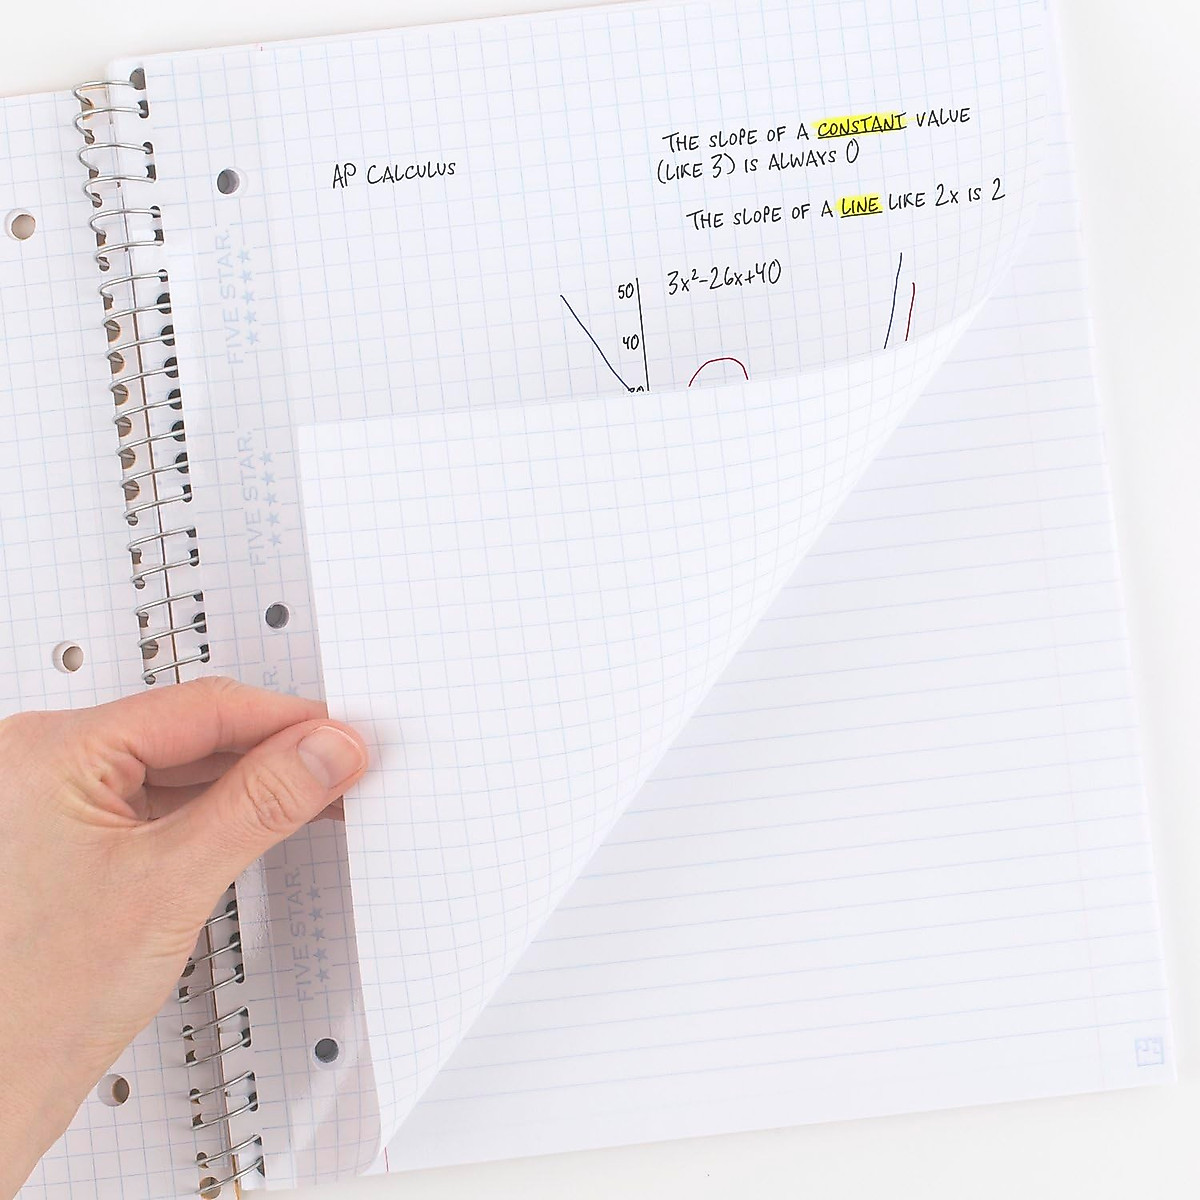 AP CALCULUS
THE SLOPE OF A CONSTANT VALUE
(LIKE 3) IS ALWAYS 0
THE SLOPE OF A LINE LIKE 2x IS 2
3x²-26x+40
50
40
FIVE STAR.
FIVE STAR.
R.
FIVE STAR.